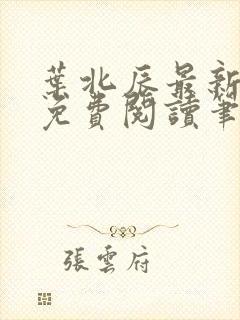 葉北辰最新
免費閱讀筆
張雲府